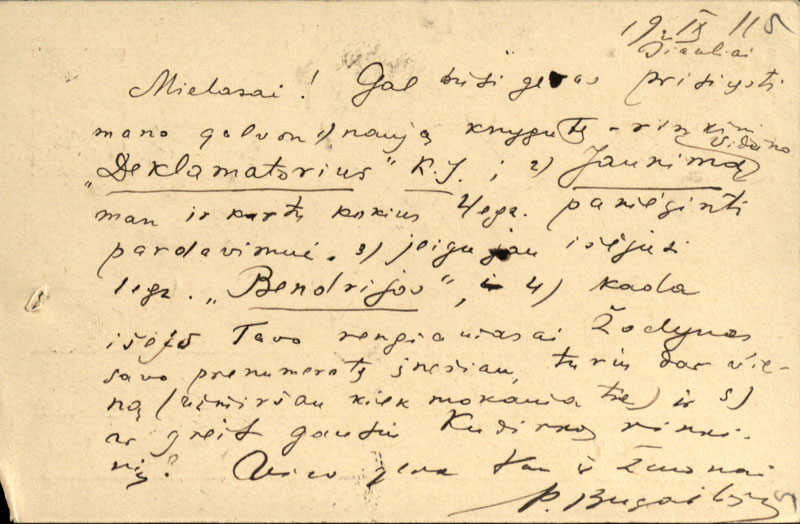 19 IX 115
Šiauliai
Mielasai! Gal būsi geras prisiųsti
mano galvon 1) naują knygutę - rinkinį
Vidūno
„Deklamatorius" K.J. ; 2) Jaunimą
man ir kartu kokius 4 egz. pamėginti
pardavimui. 3) jeigu jau išėjusi
1 egz. „Bendrijos", 4) kada
išeis Tavo rengiamasai Žodynas
savo prenumeratą įnešiau, turiu dar vie-
ną (užmiršau kiek mokama tie) ir 5)
ar greit gausiu Kudirkos rinki-
nį? Viso gera Tau ir žmonai
P. Bugailiškis